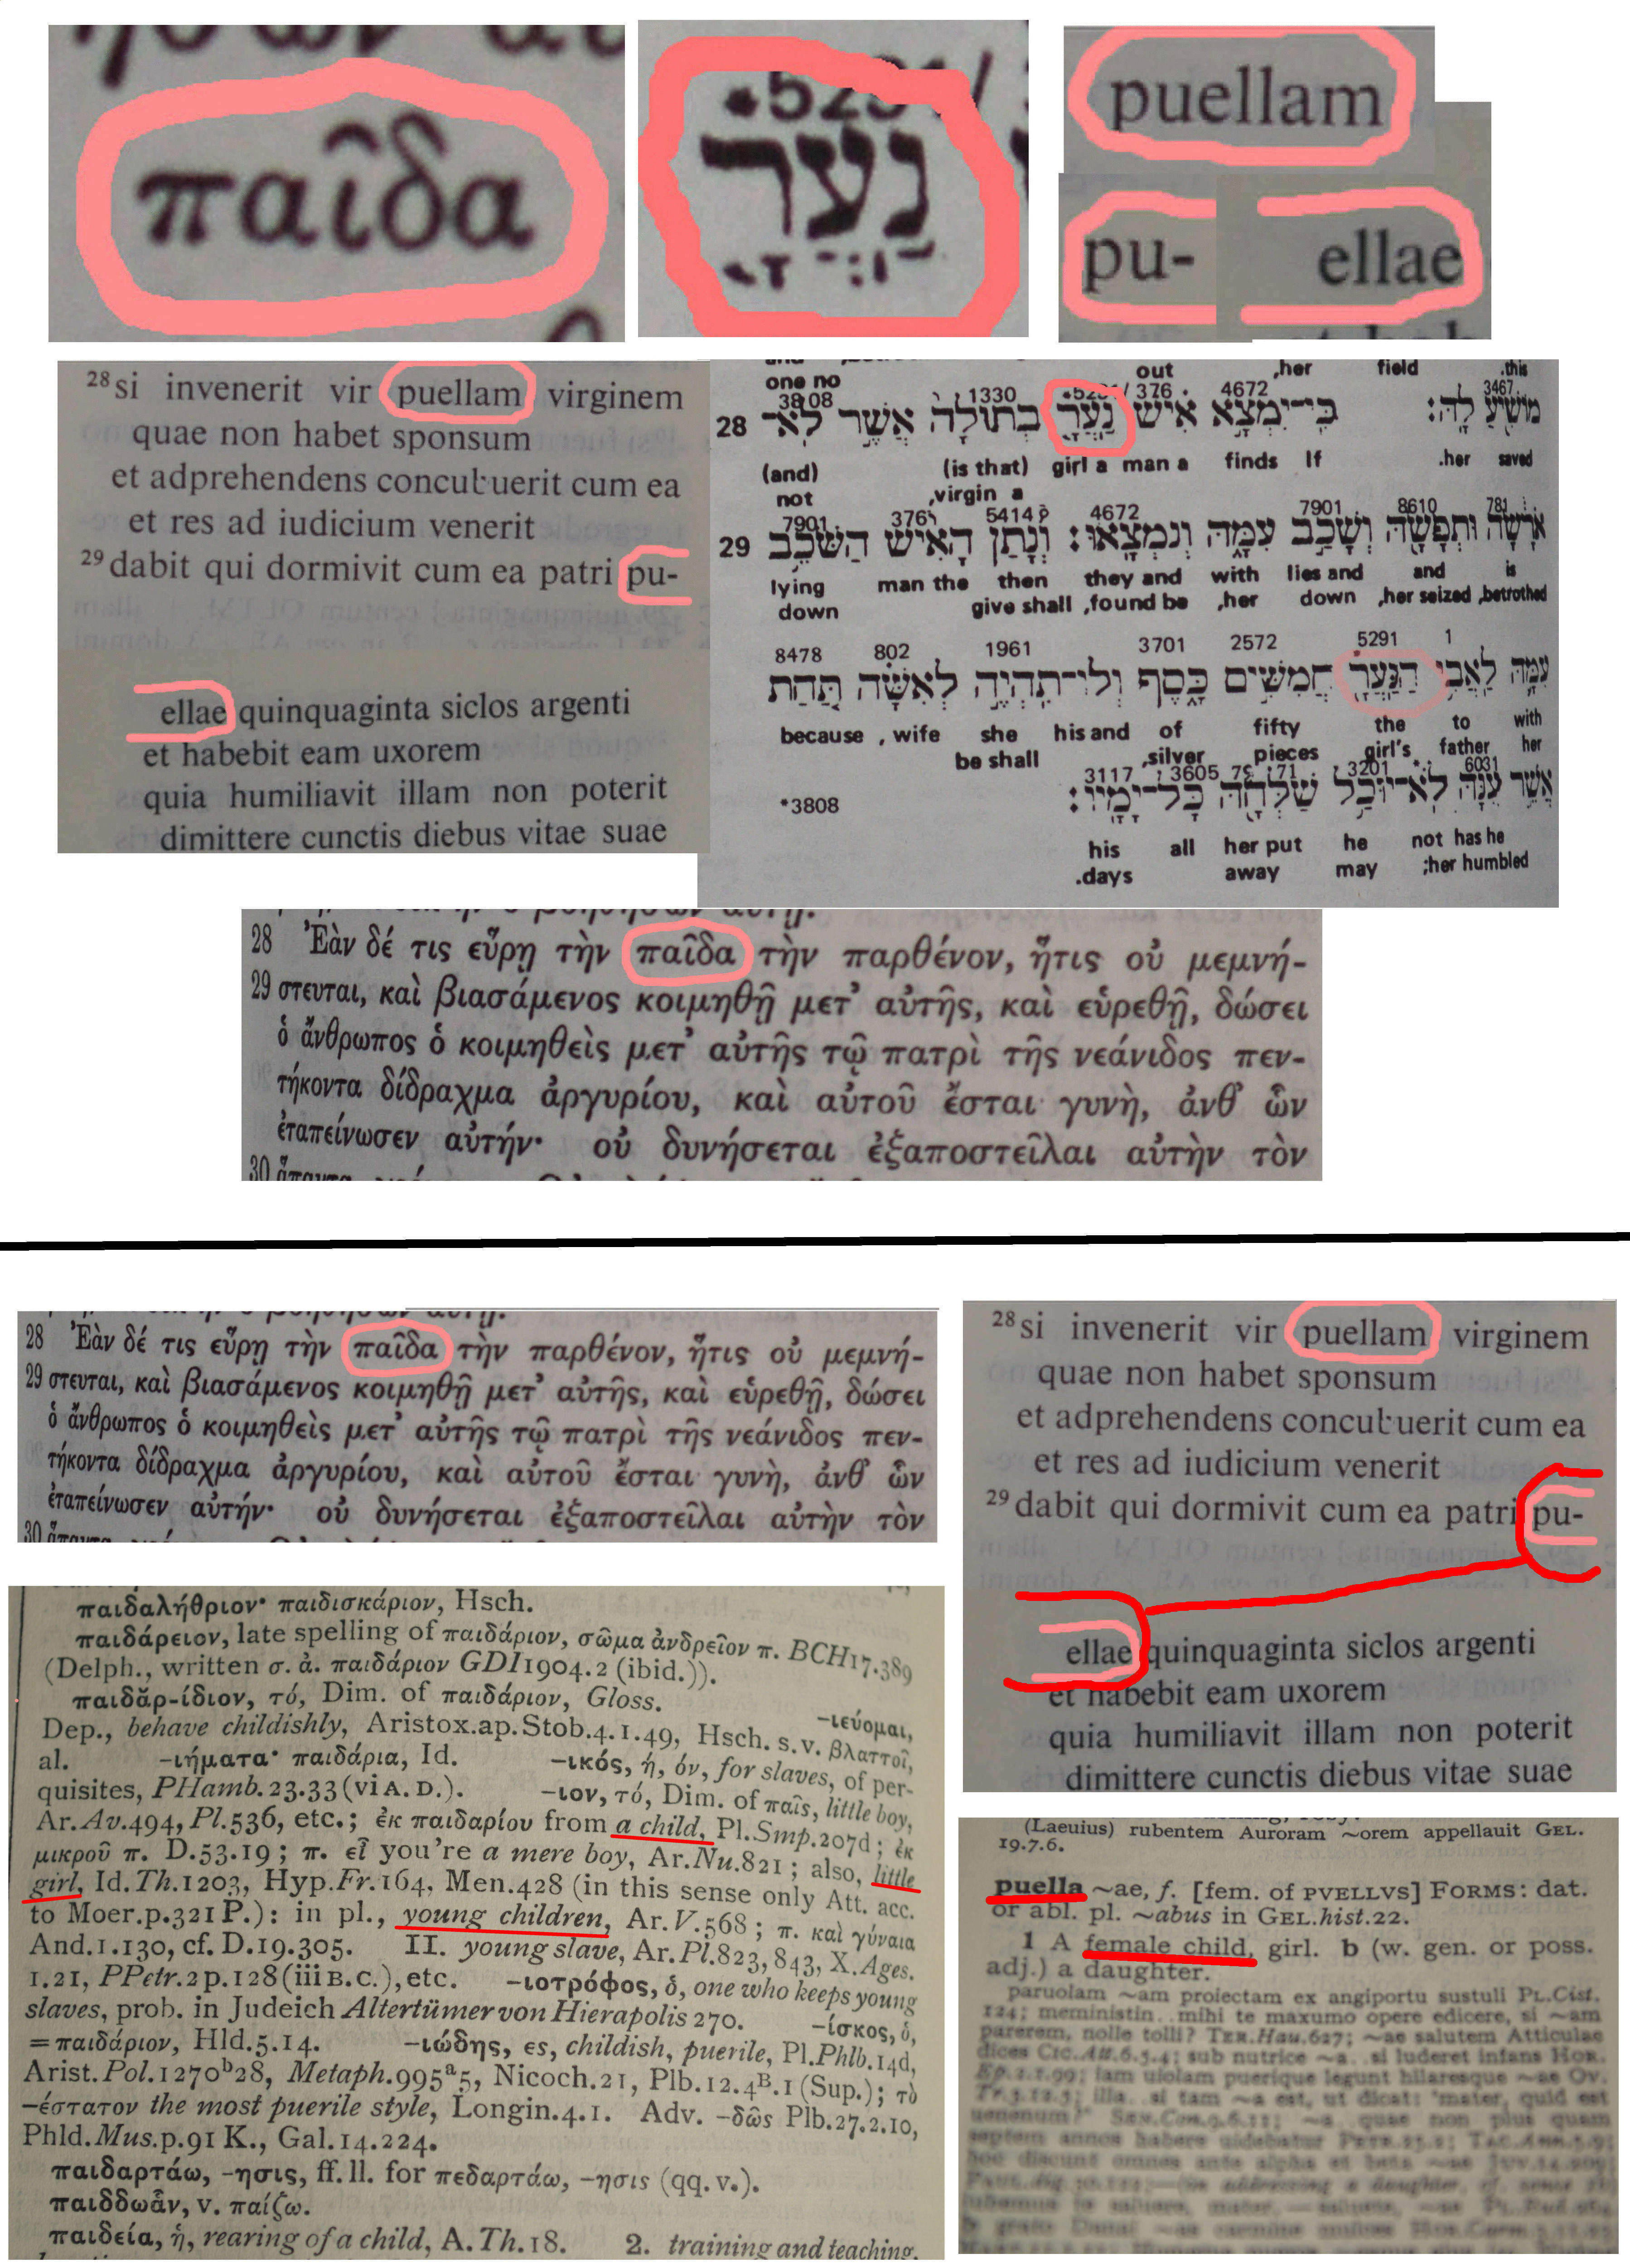 παῖδα
נַעֲרָ
puellam
pu-
ellae
28 si invenerit vir puellam virginem
quae non habet sponsum
et adprehendens concubuerit cum ea
et res ad iudicium venerit
29 dabit qui dormivit cum ea patri pu-
ellae quinquaginta siclos argenti
et habebit eam uxorem
quia humiliavit illam non poterit
dimittere cunctis diebus vitae suae
one no out ,her field .this
3808 1330 376 4672 3467
28 מוֹשִׁיעַ לָהּ׃ כִּי־יִמְצָא אִישׁ נַעֲרָ בְתוּלָה אֲשֶׁר לֹא־
(and) (is that) girl a man a finds If .her saved
not ,virgin a
7901 376 5414 4672 7901 8610 781
29 אֹרָשָׂה וּתְפָשָׂהּ וְשָׁכַב עִמָּהּ וְנִמְצָאוּ׃ וְנָתַן הָאִישׁ הַשֹּׁכֵב
lying man the then they and with lies and and is
down give shall ,found be ,her down ,her seized ,betrothed
8478 802 1961 3701 2572 5291 1
עִמָּהּ לַאֲבִי הַנַּעֲרָ חֲמִשִּׁים כָּסֶף וְלוֹ־תִהְיֶה לְאִשָּׁה תַּחַת
because , wife she his and of fifty the to with
be shall ,silver pieces girl's father her
3117 3605 71 3201 6031
אֲשֶׁר עִנָּהּ לֹא־יוּכַל שַׁלְּחָהּ כָּל־יָמָיו׃
*3808
his all her put he not has he
.days away may ;her humbled
28 Ἐὰν δέ τις εὕρῃ τὴν παῖδα τὴν παρθένον, ἥτις οὐ μεμνή-
29 στευται, καὶ βιασάμενος κοιμηθῇ μετ᾽ αὐτῆς, καὶ εὑρεθῇ, δώσει
ὁ ἄνθρωπος ὁ κοιμηθεὶς μετ᾽ αὐτῆς τῷ πατρὶ τῆς νεάνιδος πεν-
τήκοντα δίδραχμα ἀργυρίου, καὶ αὐτοῦ ἔσται γυνὴ, ἀνθ᾽ ὧν
ἐταπείνωσεν αὐτήν· οὐ δυνήσεται ἐξαποστεῖλαι αὐτὴν τὸν
30
28 Ἐὰν δέ τις εὕρῃ τὴν παῖδα τὴν παρθένον, ἥτις οὐ μεμνή-
29 στευται, καὶ βιασάμενος κοιμηθῇ μετ᾽ αὐτῆς, καὶ εὑρεθῇ, δώσει
ὁ ἄνθρωπος ὁ κοιμηθεὶς μετ᾽ αὐτῆς τῷ πατρὶ τῆς νεάνιδος πεν-
τήκοντα δίδραχμα ἀργυρίου, καὶ αὐτοῦ ἔσται γυνὴ, ἀνθ᾽ ὧν
ἐταπείνωσεν αὐτήν· οὐ δυνήσεται ἐξαποστεῖλαι αὐτὴν τὸν
30
28 si invenerit vir puellam virginem
quae non habet sponsum
et adprehendens concubuerit cum ea
et res ad iudicium venerit
29 dabit qui dormivit cum ea patri pu-
ellae quinquaginta siclos argenti
et habebit eam uxorem
quia humiliavit illam non poterit
dimittere cunctis diebus vitae suae
παιδαλήθριον· παιδισκάριον, Hsch.
παιδάρειον, late spelling of παιδάριον, σῶμα ἀνδρεῖον π. BCH17.389
(Delph., written σ. ἀ. παιδάριον GDI1904.2 (ibid.)).
παιδᾰρ-ίδιον, τό, Dim. of παιδάριον, Gloss. -ιεύομαι,
Dep., behave childishly, Aristox.ap.Stob.4.1.49, Hsch. s.v. βλαττοῖ,
al. -ιήματα· παιδάρια, Id. -ικός, ή, όν, for slaves, of per-
quisites, PHamb.23.33 (vi A. D.). -ιον, τό, Dim. of παῖς, little boy,
Ar.Av.494, Pl.536, etc.; ἐκ παιδαρίου from a child, Pl.Smp.207d; ἐκ
μικροῦ π. D.53.19; π. εἶ you're a mere boy, Ar.Nu.821; also, little
girl, Id.Th.1203, Hyp.Fr.164, Men.428 (in this sense only Att. acc.
to Moer.p.321 P.): in pl., young children, Ar.V.568; π. καὶ γύναια
And.1.130, cf. D.19.305. II. young slave, Ar.Pl.823, 843, X.Ages.
1.21, PPetr.2p.128 (iii B. C.), etc. -ιοτρόφος, ὁ, one who keeps young
slaves, prob. in Judeich Altertümer von Hierapolis 270. -ίσκος, ὁ,
= παιδάριον, Hld.5.14. -ιώδης, ες, childish, puerile, Pl.Phlb.14d,
Arist.Pol.1270ᵇ28, Metaph.995ᵃ5, Nicoch.21, Plb.12.4ᴮ.1 (Sup.); τὸ
-έστατον the most puerile style, Longin.4.1. Adv. -δῶς Plb.27.2.10,
Phld.Mus.p.91 K., Gal.14.224.
παιδαρτάω, -ησις, ff. ll. for πεδαρτάω, -ησις (qq. v.).
παιδδωἇν, v. παίζω.
παιδεία, ἡ, rearing of a child, A.Th.18. 2. training and teaching,
(Laeuius) rubentem Auroram ~orem appellauit GEL.
19.7.6.
puella ~ae, f. [fem. of PVELLVS] FORMS: dat.
or abl. pl. ~abus in GEL.hist.22.
1 A female child, girl. b (w. gen. or poss.
adj.) a daughter.
paruolam ~am proiectam ex angiportu sustuli PL.Cist.
124; meministin.. mihi te maxumo opere edicere, si ~am
parerem, nolle tolli? TER.Hau.627; ~ae salutem Atticulae
dices CIC.Att.6.5.4; sub nutrice ~a.. si luderet infans HOR.